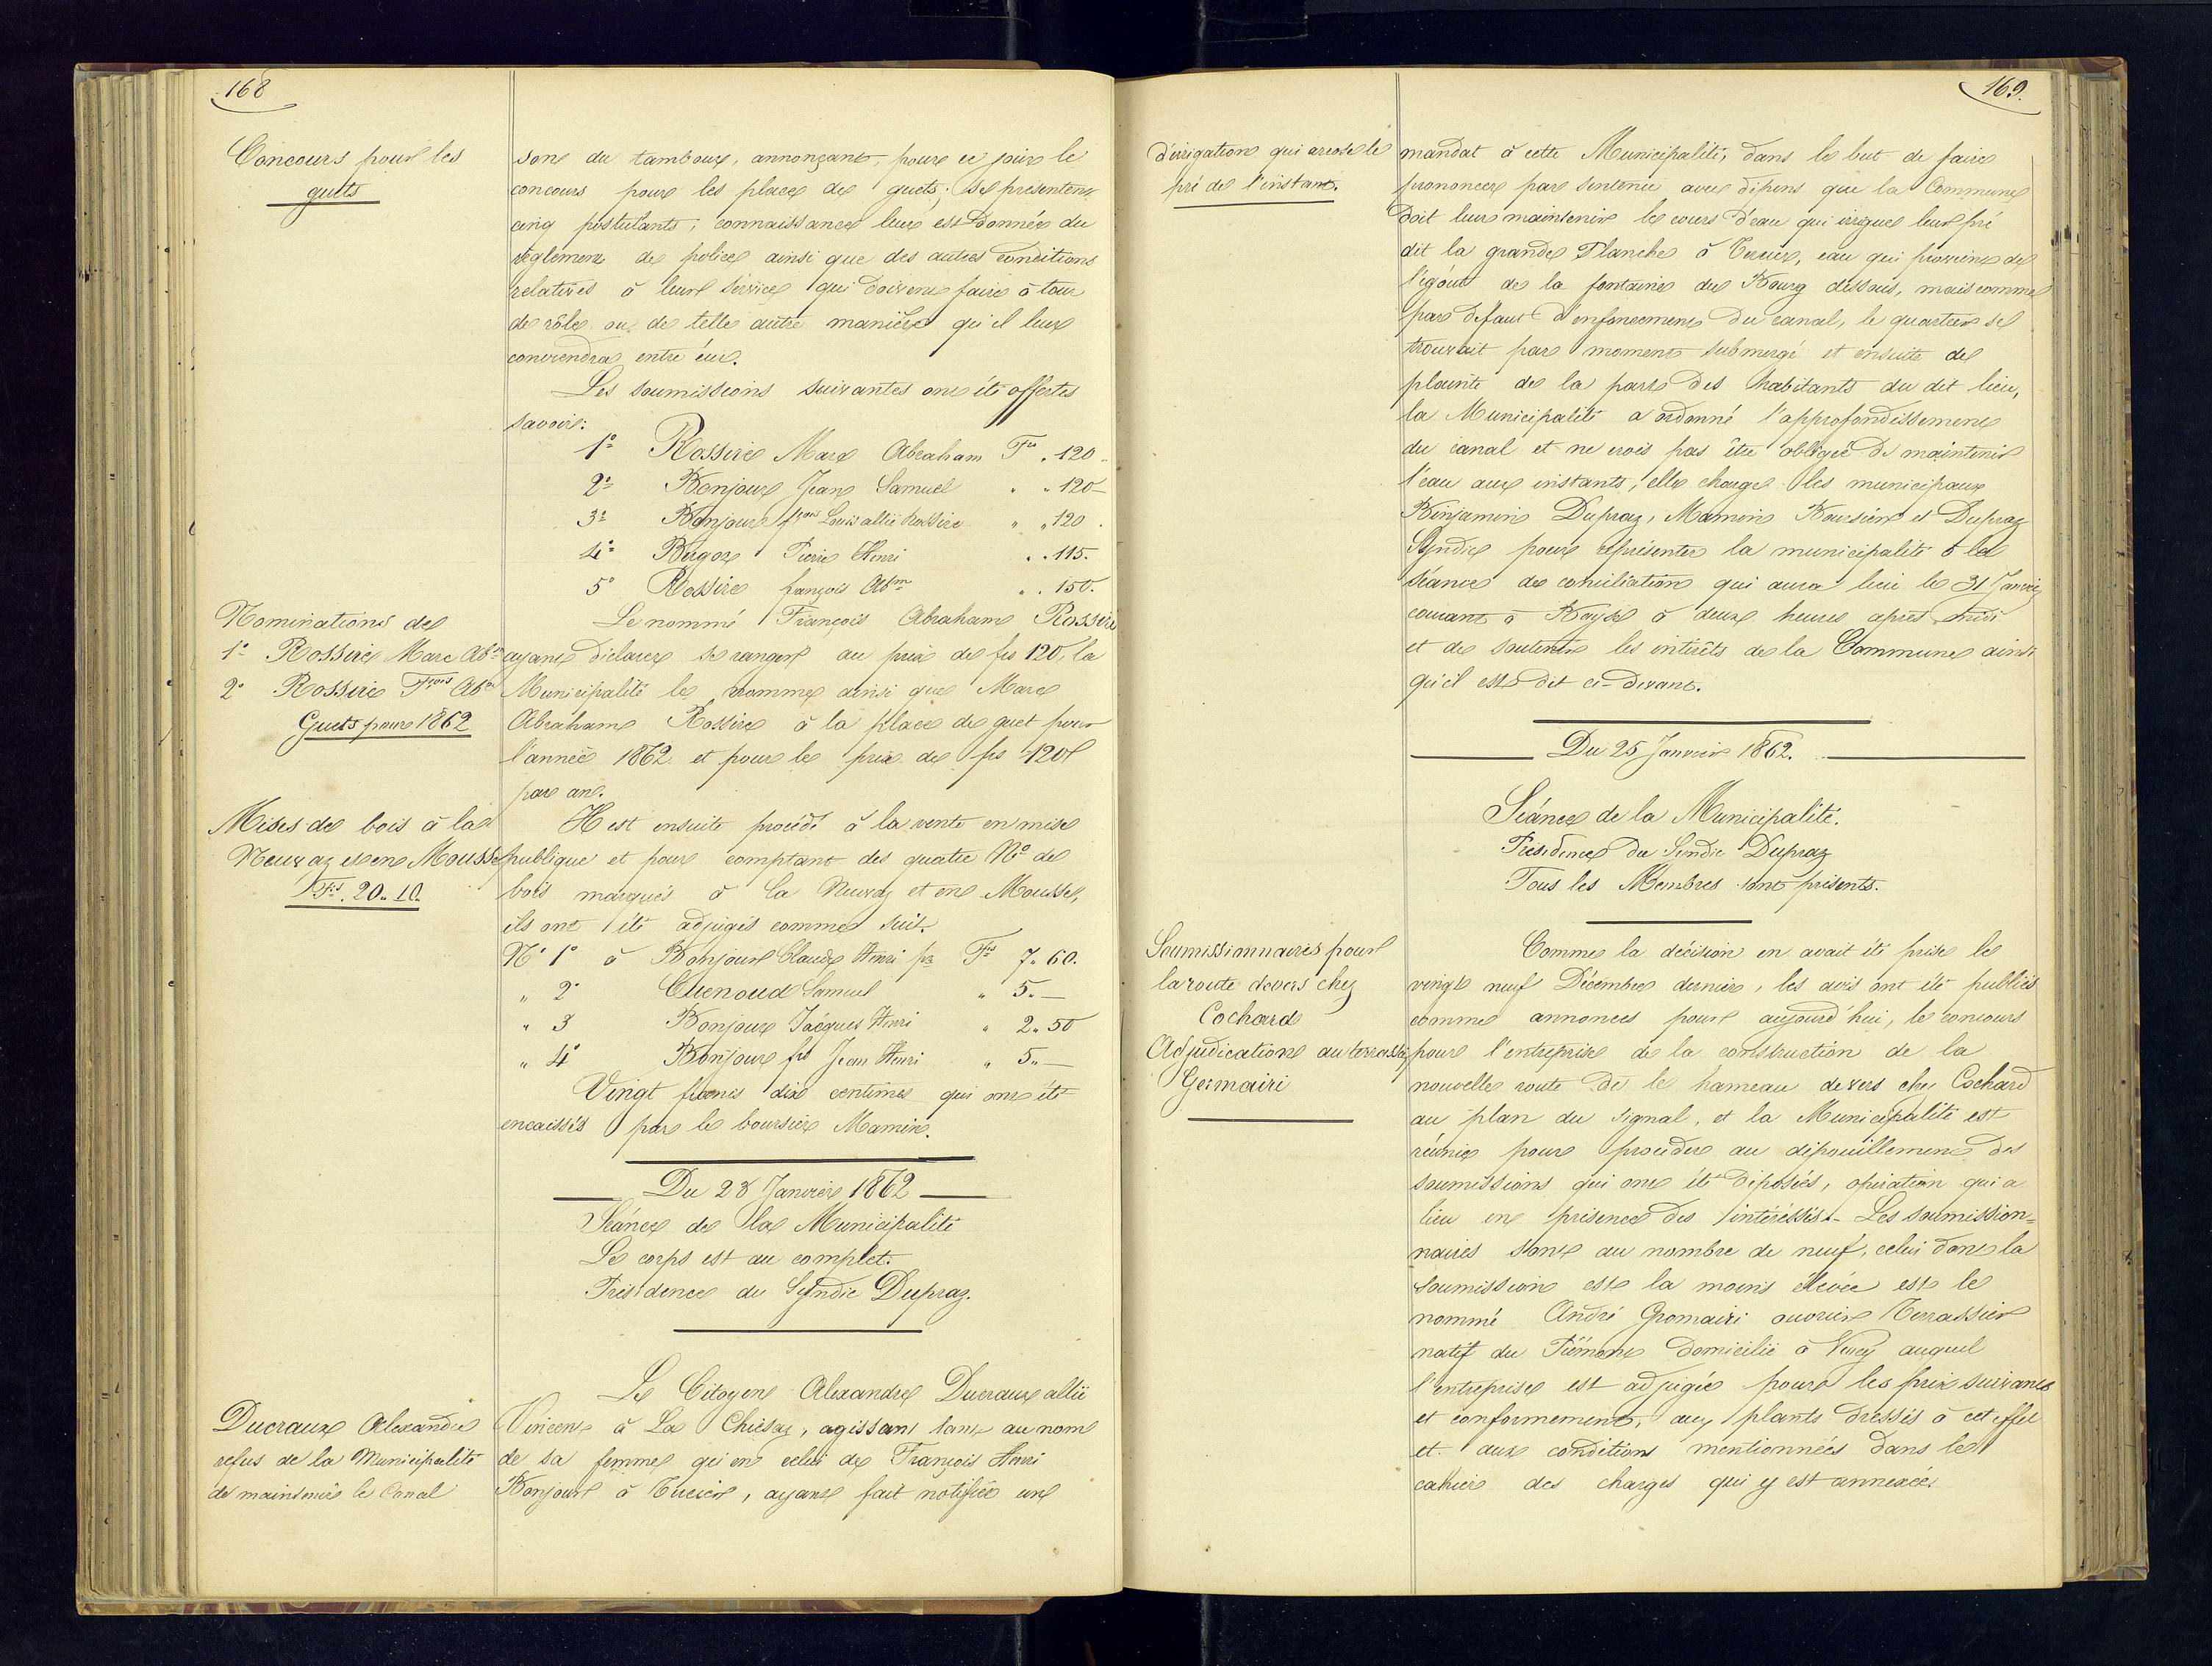 168
Concours pour les
guets
son du tambour, annonçant, pour ce jour le
concours pour les places de guets; se présentent
cinq postulants; connaissance leur est donnée du
règlement de police ainsi que des autres conditions
relatives à leur service qui doivent faire à tour
de rôle ou de telle autre manière qu'il leur
conviendra entre eux.
Les soumissions suivantes ont été offertes
savoir:
1° Rossire Marc Abraham Fcs „ 120 „
2° Bonjour Jean Samuel „ „ 120 —
3° Bonjour fçois Louis allié Rossire „ „ 120 .
4° Bugor Pierre Henri „ „ 115.
5° Rossire françois Abm „ „ 150.
Nominations de
1° Rossire Marc Abm
2° Rossire Fçois Abm
Guets pour 1862
Le nommé François Abraham Rossire
ayant déclarer se ranger au prix de frs 120, la
Municipalité le nomme ainsi que Marc
Abraham Rossire à la place de guet pour
l'année 1862 et pour le prix de frs 120
par an.
Mises de bois à la
Neuvaz et en Mousse
Frs. 20 „ 10.
Il est ensuite procédé à la vente en mise
publique et pour comptant des quatre No de
bois marqués à la Neuvaz et en Mousse,
ils ont été adjugés comme suit.
N° 1° à Bonjour Claude Henri pr Frs 7 „ 60.
„ 2° Chenoud Samuel „ 5 „ —
„ 3 Bonjour Jacques Henri „ 2 „ 50
„ 4° Bonjour fs Jean Henri „ 5 „ —
Vingt francs dix centimes qui ont été
encaissés par le boursier Mamin.
Du 28 Janvier 1862
Séance de la Municipalité
Le corps est au complet.
Présidence du Syndic Dupraz.
Ducraux Alexandre
refus de la Municipalité
de maintenir le Canal
Le Citoyen Alexandre Ducraux allié
Vincent à La Chiésaz, agissant tant au nom
de sa femme qu'en celui de François Henri
Bonjour à Tercier, ayant fait notifier un
169.
d'irrigation qui arrose le
pré de l'instant.
mandat à cette Municipalité, dans le but de faire
prononcer par sentence avec dépens que la Commune
doit leur maintenir le cours d'eau qui irrigue leur pré
dit la grande Planche à Tercier, eau qui provient de
l'égout de la fontaine du Bourg dessous, mais comme
par défaut d'enfoncement du canal, le quartier se
trouvait par moment submergé et ensuite de
plainte de la part des habitants du dit lieu,
la Municipalité a ordonné l'approfondissement
du canal et ne crois pas être obligée de maintenir
l'eau aux instants, elle charge les municipaux
Benjamin Dupraz, Mamin Boursier et Dupraz
Syndic pour représenter la municipalité à la
séance de conciliation qui aura lieu le 31 Janvier
courant à Bayse à deux heures après midi
et de soutenir les intérêts de la Commune ainsi
qu'il est dit ci-devant.
Du 25 Janvier 1862.
Séance de la Municipalité.
Présidence du Sindic Dupraz
Tous les Membres sont présents.
Soumissionnaires pour
la route devers chez
Cochard
Adjudication au terrassier
Germairi
Comme la décision en avait été prise le
vingt neuf Décembre dernier, les avis ont été publiés
comme annoncés pour aujourd'hui, le concours
pour l'entreprise de la construction de la
nouvelle route de le hameau devers chez Cochard
au plan du signal, et la Municipalité est
réunie pour procéder au dépouillement des
soumissions qui ont été déposées, opération qui a
lieu en présence des intéressés. – Les soumission=
naires sont au nombre de neuf, celui dont la
soumission est la moins élevée est le
nommé André Gromairi ouvrier Terrassier
natif du Piémont domicilié à Vevey auquel
l'entreprise est adjugée pour les prix suivants
et conformément, aux plants dressés à cet effet
et aux conditions mentionnées dans le
cahier des charges qui y est annexée.